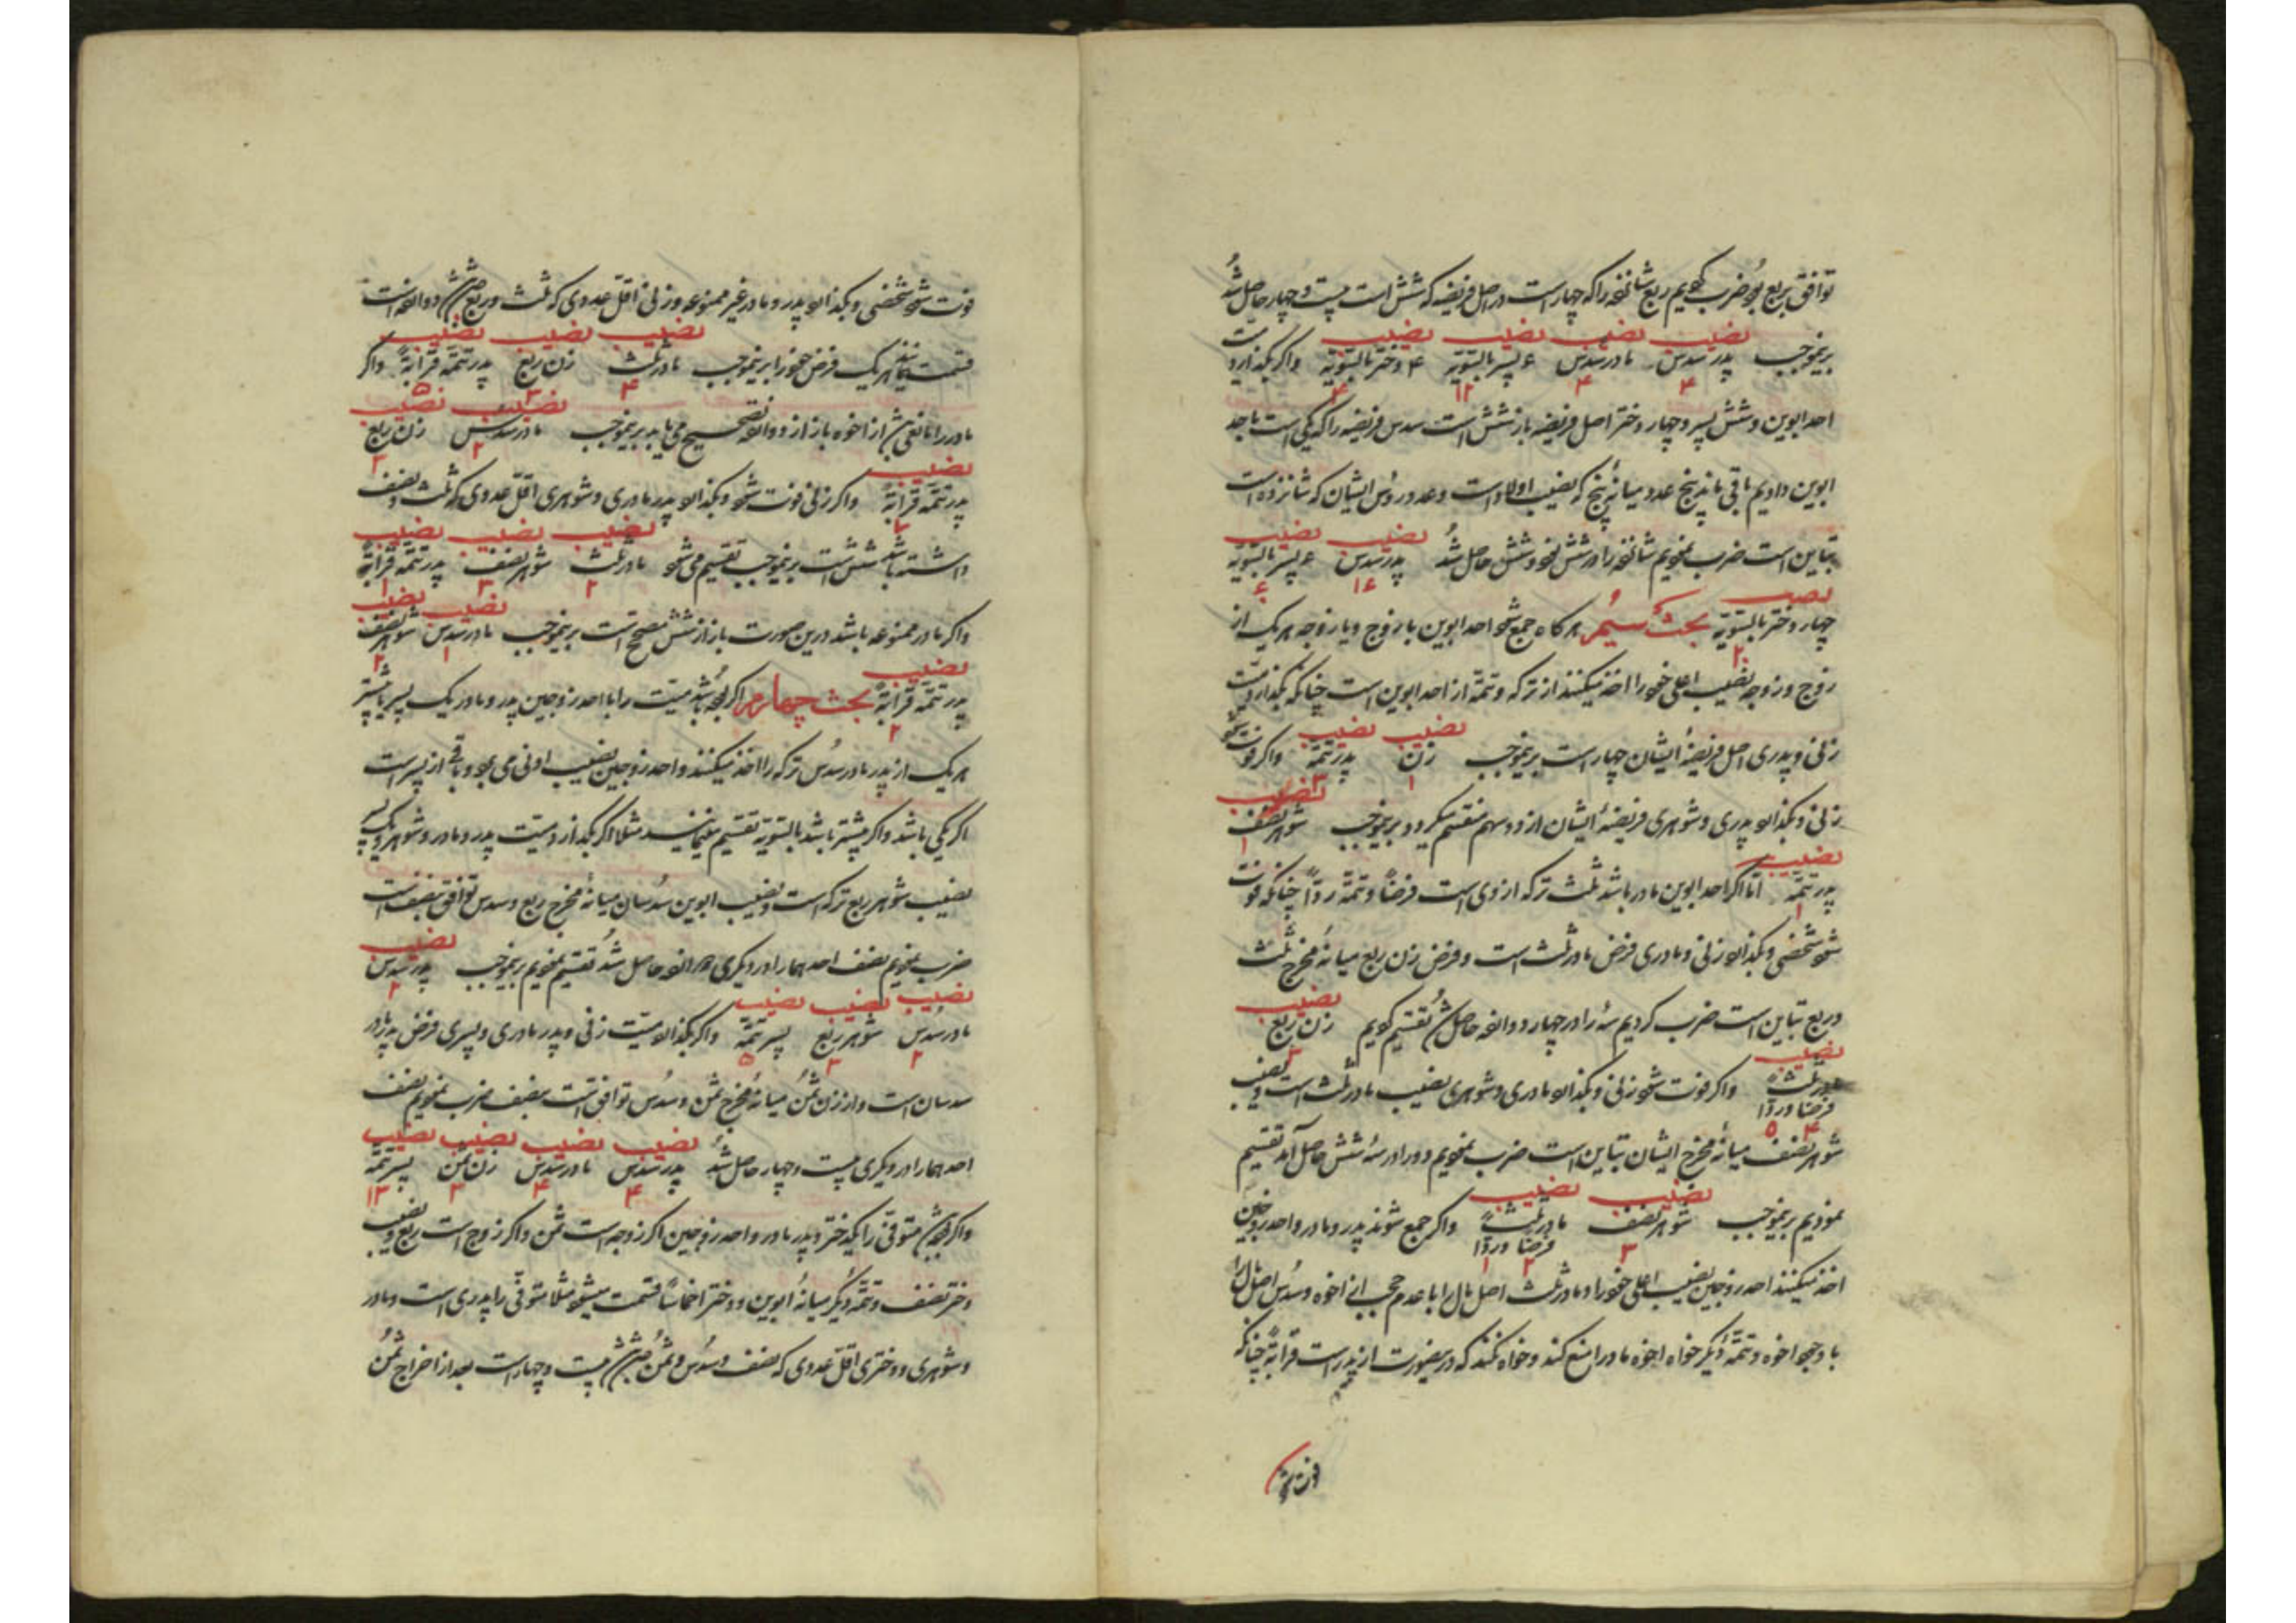 توافق بربع بود ضرب کردیم ربع شانزده را که چهار است در اصل فریضه که شش است بیست و چهار حاصل شد
نصیب نصیب نصیب نصیب
برینموجب پدر سدس مادر سدس ۶ پسر بالسویّه ۴ دختر بالسویّه واکر بکذارد میّت
۴ ۴ ۱۲ ۴
احد ابوین و شش پسر و چهار دختر اصل فریضه باز شش است سدس فریضه را که یکی است باحد
ابوین دادیم باقی ماند پنج عدد میانهٔ پنج که نصیب اولاد است وعدد رؤس ایشان که شانزده است
نصیب نصیب
تباین است ضرب نمودیم شانزده را در شش نود و شش حاصل شد پدر سدس ۶ پسر بالسویّه
۱۶ ۶۰
نصیب
چهار دختر بالسویّه بحث سیّم هرکاه جمع شود احد ابوین با زوج و یا زوجه هریک از
۲۰
زوج و زوجه نصیب اعلی خود را اخذ میکنند از ترکه و تتمّه از احد ابوین است چنانکه بکذارد میّت
نصیب نصیب
زنی و پدری اصل فریضهٔ ایشان چهار است برینموجب زن پدر تتمّه واکر فوت شود
۱ ۳
نصیب
زنی و بکذارد پدری و شوهری فریضهٔ ایشان از دو سهم منقسم میکردد برینموجب شوهر نصف
۱
نصیب
پدر تتمّه امّا اکر احد ابوین مادر باشد ثلث ترکه از وی است فرضاً و تتمّه ردّاً چنانکه فوت
۱
شود شخصی و بکذارد زنی و مادری فرض مادر ثلث است و فرض زن ربع میانهٔ مخرج ثلث
نصیب
و ربع تباین است ضرب کردیم سه را در چهار دوازده حاصل شد تقسیم کردیم زن ربع
۳
نصیب
مادر ثلثه واکر فوت شود زنی و بکذارد مادری و شوهری نصیب مادر ثلث است و نصیب
فرضا وردّا
۴ ۵
شوهر نصف میانهٔ مخرج ایشان تباین است ضرب نمودیم دو را در سه شش حاصل آمد تقسیم
نصیب نصیب
نمودیم برینموجب شوهر نصف مادر ثلثه واکر جمع شوند پدر و مادر و احد زوجین
فرضا وردّا
۳ ۲ ۱
اخذ میکنند احد زوجین نصیب اعلی خود را و مادر ثلث اصل مال را با عدم حجب از اخوه و سدس اصل مال را
با وجود اخوه و تتمّهٔ دیکر خواه اخوه مادر را منع کند و خواه نکند که درینصورت از پدر است قرابةً چنانکه
فوت شود
فوت شود شخصی و بکذارد پدر و مادر غیر ممنوعه و زنی اقلّ عددی که ثلث و ربع دوازده است
نصیب نصیب نصیب
قسمت مینمایند هریک فرض خود را برینموجب مادر ثلث زن ربع پدر تتمّه قرابةً واکر
۴ ۳ ۵
نصیب نصیب
مادر را مانعی از اخوه باز از دوازده تصحیح می‌یابد برینموجب مادر سدس زن ربع
۲ ۳
نصیب
پدر تتمّه قرابةً واکر زنی فوت شود و بکذارد پدر مادری و شوهری اقلّ عددی که ثلث و نصف
۷
نصیب نصیب نصیب
داشته باشد شش است برینموجب تقسیم می‌شود مادر ثلث شوهر نصف پدر تتمّه قرابةً
۲ ۳ ۱
نصیب نصیب
واکر مادر ممنوعه باشد درین صورت باز از شش مصحح است برینموجب مادر سدس شوهر نصف
۱ ۳
نصیب
پدر تتمّه قرابةً بحث چهارم اکر بوده باشد میّت را با احد زوجین پدر و مادر یک پسر یا بیشتر
۲
هریک از پدر مادر سدس ترکه را اخذ میکنند و احد زوجین نصیب ادنی می‌برد و باقی از پسر است
اکر یکی باشد واکر بیشتر باشد بالسویّه تقسیم مینمایند مثلا اکر بکذارد میّت پدر و مادر و شوهر و یک پسر
نصیب شوهر ربع ترکه است و نصیب ابوین سدسان میانهٔ مخرج ربع و سدس توافق بنصف است
نصیب
ضرب نمودیم نصف احدهما را در دیکری دوازده حاصل شد تقسیم نمودیم برینموجب پدر سدس
۲
نصیب نصیب نصیب
مادر سدس شوهر ربع پسر تتمّه واکر بکذارد میّت زنی و پدر مادری و پسری فرض پدر مادر
۲ ۳ ۵
سدسان است و از زن ثمن میانهٔ مخرج ثمن و سدس توافق است بنصف ضرب نمودیم نصف
نصیب نصیب نصیب نصیب
احدهما را در دیکری بیست و چهار حاصل شد پدر سدس مادر سدس زن ثمن پسر تتمّه
۴ ۴ ۳ ۱۳
واکر متوفّی را یکدختر و پدر مادر و احد زوجین اکر زوجه است ثمن واکر زوج است ربع و نصیب
دختر نصف و تتمّهٔ دیکر میانهٔ ابوین و دختر اخماسًا قسمت میشود مثلا متوفّی را پدری است و مادر
و شوهری و دختری اقلّ عددی که نصف و سدس و ثمن بیست و چهار است بعد از اخراج ثمن